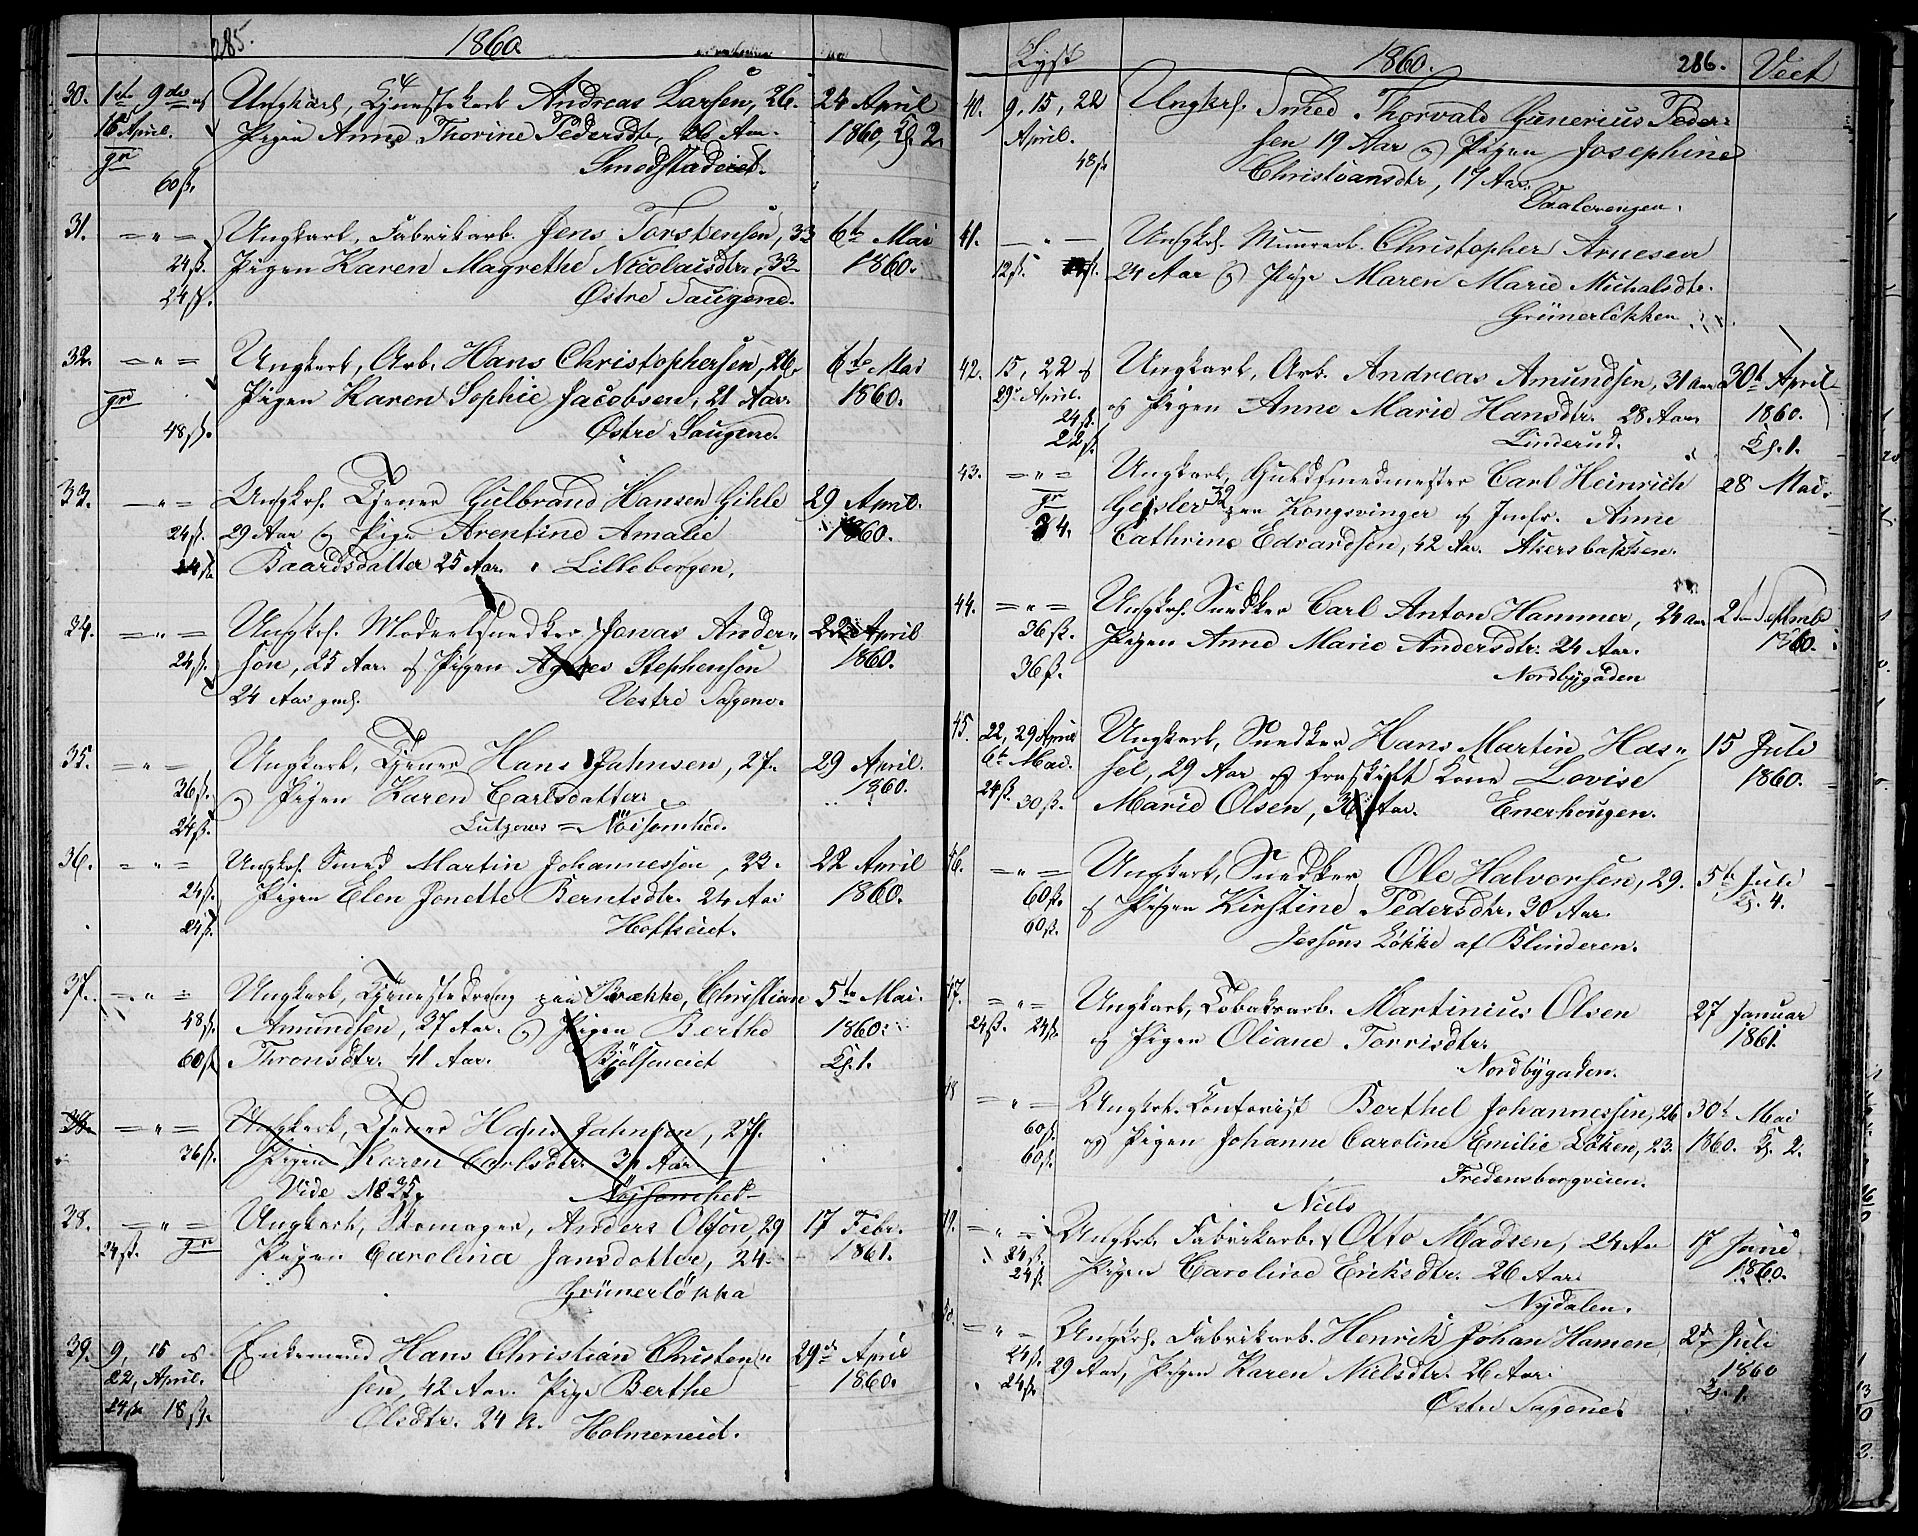 285.
1860.
30. 1ste 9de og Ungkarl, Tjenestekarl Andreas Larsen, 26. 24 April
16 April. Pigen Anne Thorine Pedersdtr, 26 Aar. 1860, Cf. 2.
gr Smedstadeiet.
60 ß.
31. – " – Ungkarl, Fabrikarb. Jens Torstensen, 33 6te Mai
24 ß. Pigen Karen Magrethe Nicolaisdtr., 33. 1860.
24 ß. Østre Saugene.
32. – " – Ungkarl, Arb. Hans Christophersen, 26. 6te Mai
gr Pigen Karen Sophie Jacobsen, 21 Aar. 1860.
48 ß. Østre Saugene.
33. – " – Ungkrl. Tjener Gulbrand Hansen Gihle 29 April.
24 ß. 29 Aar og Pige Arentine Amalie 1860.
24 ß. Baardsdatter 25 Aar. Lilleborgen.
34. – " – Ungkrl. Modelsnedker Jonas Ander- 22 April
24 ß. son, 25 Aar. og Pigen Agnes Stephenson 1860.
24 Aar Vestre Sagene.
35. – " – Ungkarl, Tjener Hans Jahnsen, 27. 29 April.
36 ß. og Pigen Karen Carlsdatter 1860.
24 ß. Lutzows – Nöisomhed.
36. – " – Ungkrl. Smed Martin Johannessen, 23. 22 April
24 ß. Pigen Elen Jonette Berntsdtr. 24 Aar 1860.
24 ß. Hoftseiet.
37. – " – Ungkarl, Tjenestedreng paa Brække, Christian 5te Mai.
48 ß. Amundsen, 37 Aar. og Pigen Berthe 1860.
60 ß Thronsdtr. 41 Aar. Bjölseneiet Cf. 1.
38. – " – Ungkarl, Tjener Hans Jahnsen, 27.
36 ß. Pigen Karen Carlsdtr. 30 Aar
Vide No 35. Nöjsomhed
38. – " – Ungkarl, Skomager, Anders Olson, 29 17 Febr.
24 ß. gr Pigen Carolina Jansdotter, 24. 1861.
Grünerløkka
39. 9, 15 og Enkemand Hans Christian Christen- 29de April
22, April. sen, 42 Aar. Pige Berthe 1860.
24 ß 18 ß. Olsdtr. 24 A. Holmeneiet.
Lyst 1860. 286. Viet
40. 9, 15, 22 Ungkrl. Smed Thorvald Gunerius Peder-
April. sen 19 Aar og Pigen Josephine
48 ß Christiansdtr, 17 Aar.
Vaalerengen.
41. – " – Ungkrl. Murerarb. Christopher Arnesen
12 ß. 24 Aar og Pige Maren Marie Michalsdtr.
Grünerløkken
42. 15, 22 og Ungkarl, Arb. Andreas Amundsen, 31 Aar 30t April
29. April. og Pigen Anne Marie Hansdtr. 28 Aar. 1860.
24 ß. Linderud. Cf. 1.
22 ß.
43. – " – Ungkarl, Guldsmedmester Carl Heinrich 28 Mai.
gr Geisler 32 paa Kongsvinger og Jmfr. Anne
24. Cathrine Edvardsen, 42 Aar. Akersbakken.
44. – " – Ungkrl. Snedker Carl Anton Hammer, 24 Aar 2den Septembr
36 ß. Pigen Anne Marie Andersdtr. 24 Aar. 1860.
36 ß. Nordbygaden
45. 22, 29 April Ungkarl, Snedker Hans Martin Has- 15 Juli
6te Mai. sel, 29 Aar og fraskilt Kone Lovise 1860.
24 ß. 30 ß. Marie Olsen, 36 Aar. Enerhougen.
46. – " – Ungkarl, Snedker Ole Halvorsen, 29. 5te Juli
60 ß. og Pigen Kirstine Pedersdtr. 30 Aar. Cf. 4.
60 ß. Jessens Løkke af Blinderen.
47. – " – Ungkarl, Tobaksarb. Martinius Olsen 27 Januar
24 ß. 24 ß. og Pigen Oliane Torrisdtr. 1861.
Nordbygaden.
48 – " – Ungkrl. Contorist Berthel Johannessen, 26 30t Mai
60 ß. og Pigen Johanne Caroline Emilie Löken, 23. 1860. Cf. 2.
60 ß. Fredensborgveien.
Niels
49. – " – Ungkrl. Fabrikarb. Otto Madsen, 24 Aar 17 Juni
24 ß. Pigen Caroline Eriksdtr. 26 Aar. 1860.
24 ß. Nydalen.
50. – " – Ungkrl. Fabrikarb. Henrik Johan Hansen 2de Juli
24 ß. 29 Aar, Pigen Karen Nielsdtr. 26 Aar. 1860
24 ß. Østre Sagene. Cf. 1.